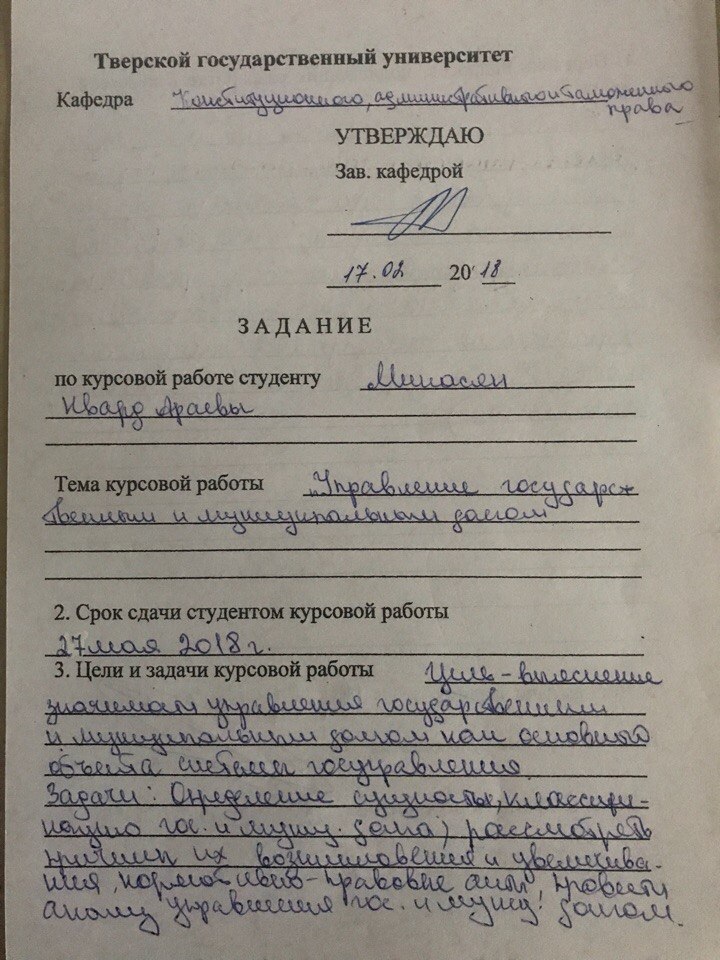 Тверской государственный университет
Кафедра Конституционного, административного и таможенного
права
УТВЕРЖДАЮ
Зав. кафедрой
17.02 2018
ЗАДАНИЕ
по курсовой работе студенту Минасян
Нвард Араевы
Тема курсовой работы "Управление государс-
твенным и муниципальным долгом
2. Срок сдачи студентом курсовой работы
27 мая 2018 г.
3. Цели и задачи курсовой работы Цель - выяснение
значимости управления государственным
и муниципальным долгом как основного
объекта системы госуправления
Задачи: Определение сущности, классифи-
кацию гос. и муниц. долга, рассмотреть
причины их возникновения и увеличива-
ния, нормативно-правовые акты, провести
анализ управления гос. и муниц. долгом.